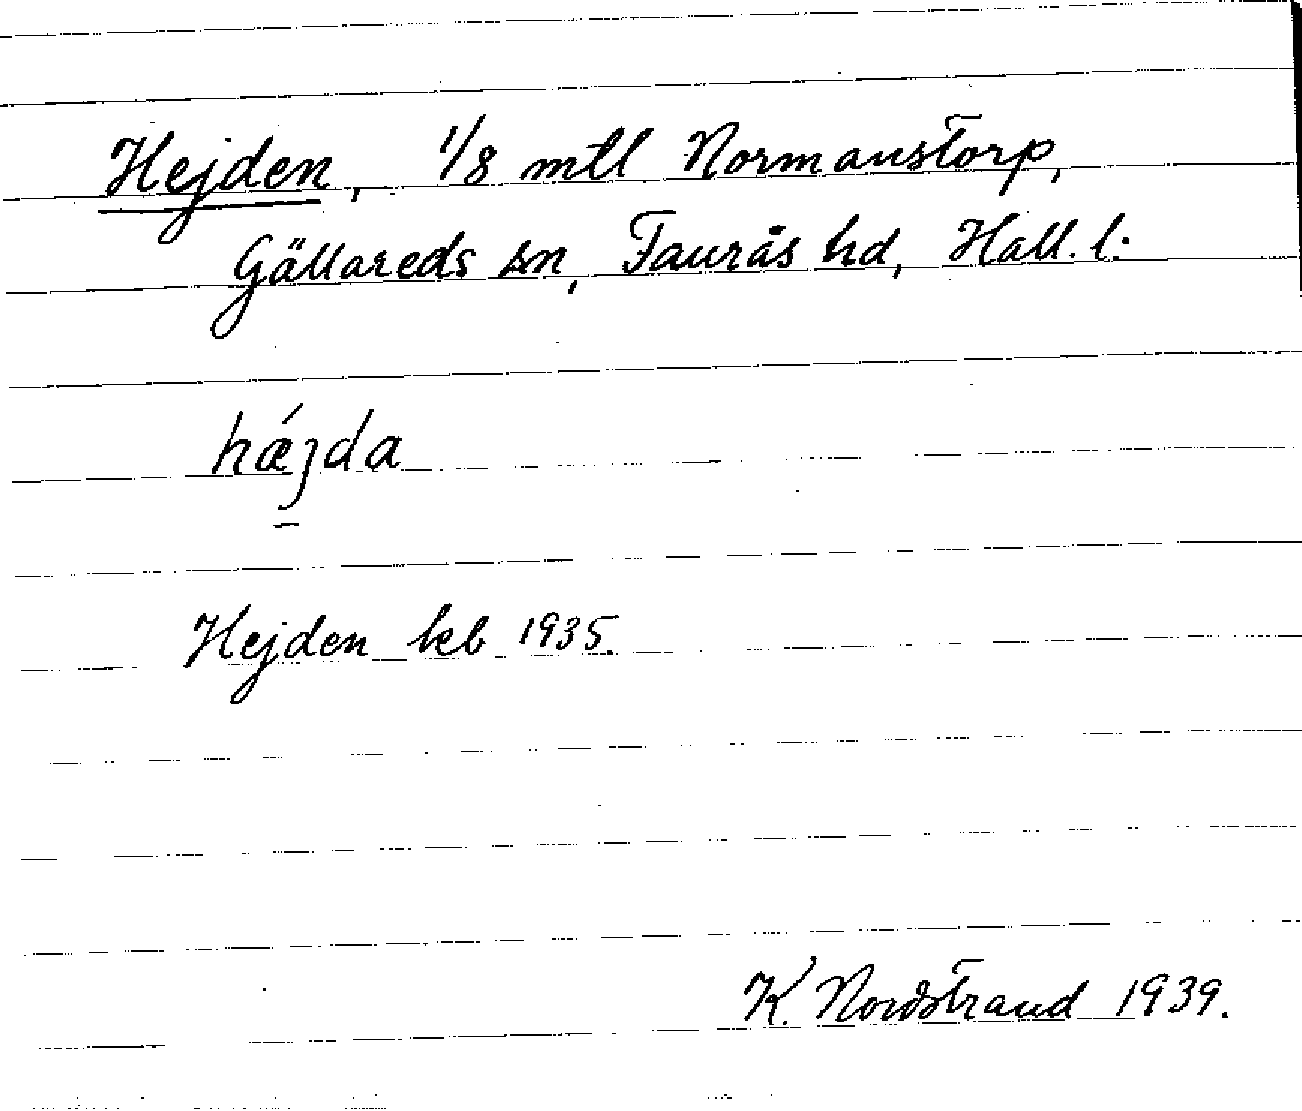 Hejden, 1/8 mtl Normanstorp,
Gällareds sn, Faurås hd, Hall. l.
hǽjda
Hejden keb 1935.
K. Nordstrand 1939.